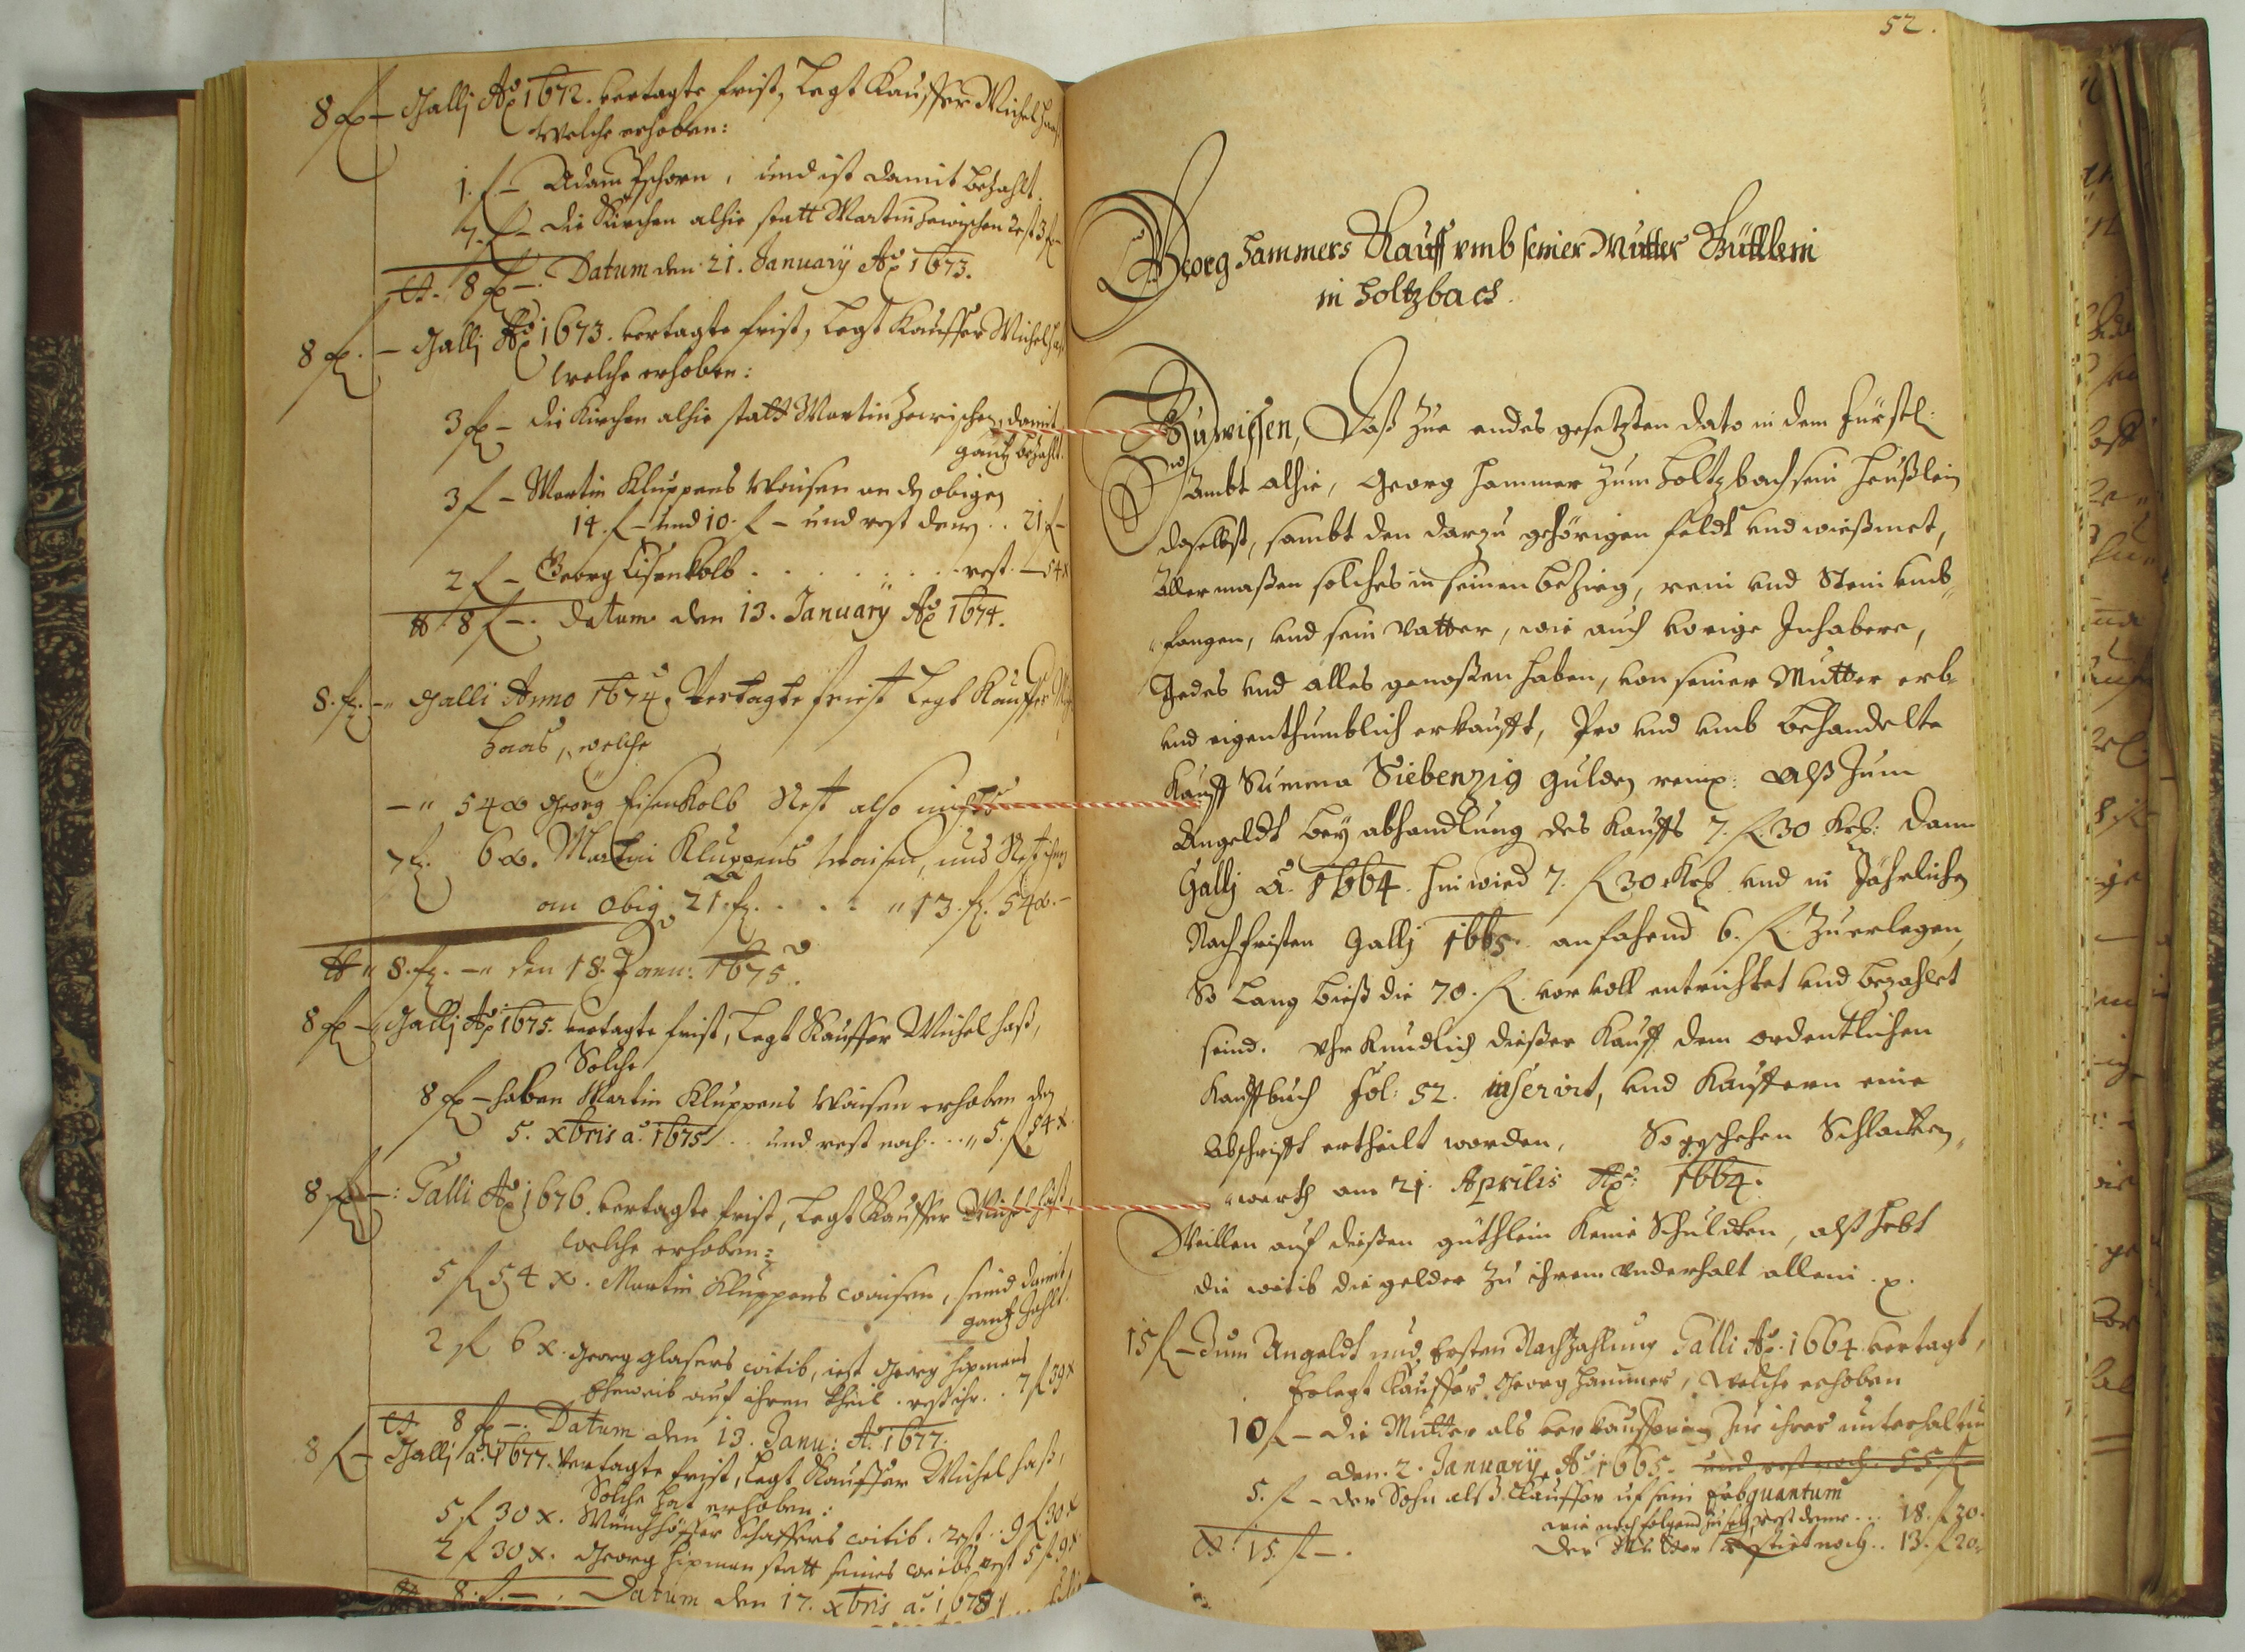 8 fl – Gallj Ao 1672. vertagte frist, Legt Kauffer Michel
Welche erhoben:
1. fl – Adam Pschorn, und ist damit bezahlt.
7. fl – die Kirchen alhie statt Martin Zewischen rest 3 fl
8 fl –. Datum den 21. January Ao 1673.
8 fl. – Gallj Ao 1673. vertagte frist, legt Kauffer Michel
welche erhoben:
3 fl – die Kirchen alhie statt Martin Zewischen, damit
gantz bezahlt.
3 fl – Martin Kluppens Waisen an den obigen
14. fl – und 10. fl – und rest denen .. 21 fl –
2 fl – Georg Eisenkolb . . . . . . . rest. – 54 x
8 fl –. Datum den 13. January Ao 1674.
8. fl. –" Galli Anno 1674. Vertagte frist Legt Kauffer
Haas, welche
–" 54 x Georg Eisenkolb Rest also nichts
7 fl. 6 x. Martin Kluppens waisen, und Rest ihnen
an obig. 21. fl. . . . . " 13. fl. 54 x. –
" 8. fl. –" den 18. Janu: 1675.
8 fl – Gallj Ao 1675. vertagte frist, Legt Kauffer Michel Haß,
Solche
8 fl – haben Martin Kluppens Waisen erhoben den
5. xbris ao. 1675 .. und rest noch .. " 5. fl 54 x.
8 fl –: Galli Ao 1676. vertagte frist, Legt Kauffer Michel Haß,
welche erhoben:
5 fl 54 x. Martin Kluppens waisen, seind damit
gantz zahlt.
2 fl 6 x. Georg Glasers witib, iezt Georg Hipmans
Eheweib auf ihren theil . rest ihr . . 7 fl 39 x
8 fl –. Datum den 13. Janu: A. 1677.
8 fl – Gallj ao. 1677. Vertagte frist, legt Kauffer Michel Haß,
Solche hat erhoben:
5 fl 30 x. Münchhöffer Schaffers witib. rest .. 9 fl 30 x
2 fl 30 x. Georg Hipman statt seines weibs rest 5 fl 9 x
8. fl. –. Datum den 17. xbris ao. 1678
52.
Georg Hammers Kauff vmb seiner Mutter Güttlein
in Holtzbach.
Zu wißen, Daß zue endes gesetzten dato in dem Fürstl:
Ambt alhie, Georg Hammer zum Holtzbach sein Heußlein
daselbst, sambt den darzu gehörigen feldt vnd wießmet,
Aller maßen solches in seinen bezirg, rein vnd Stein vmb-
fangen, vnd sein Vatter, wie auch vorige Inhabere,
Jedes vnd alles genoßen haben, von seiner Mutter erb-
vnd eigenthumblich erkaufft, Pro vnd vmb behandelte
Kauff Summa Siebenzig gulden reinl: Alß zum
Angeldt bey abhandlung des Kauffs 7. fl. 30 Krz: dann
Gallj A. 1664. hinwied 7. fl 30 Krz vnd in Jährlichen
Nachfristen Gallj 1665. anfahend 6. fl. zu erlegen,
So lang bieß die 70. fl. vor voll entrichtet vnd bezahlet
seind. Vhrkundlich dießer Kauff dem ordentlichen
Kauffbuch Fol: 52. inserirt, vnd Kauffern eine
Abschrifft ertheilt worden. So geschehen Schlacken-
werth am 21. Aprilis Ao: 1664.
Weillen auf dießen güthlein keine Schuldten, alß hebt
die witib die gelder zu ihrem Vnderhalt allein. p.
15 fl – Zum Angeldt und Ersten Nachzahlung Galli Ao. 1664. vertagt,
Erlegt Kauffer Georg Hammer, Welche erhoben
10 fl – die Mutter als verkaufferin zu ihrer unterhaltung
den. 2. January Ao 1665. und rest noch. 55 fl
5. fl – der Sohn alß Kauffer uf sein Erbquantum
wie nachfolgend zusehen, rest deme ... 18. fl 20.
15. fl –. Der Mutter restiret noch .. 13. fl 20.